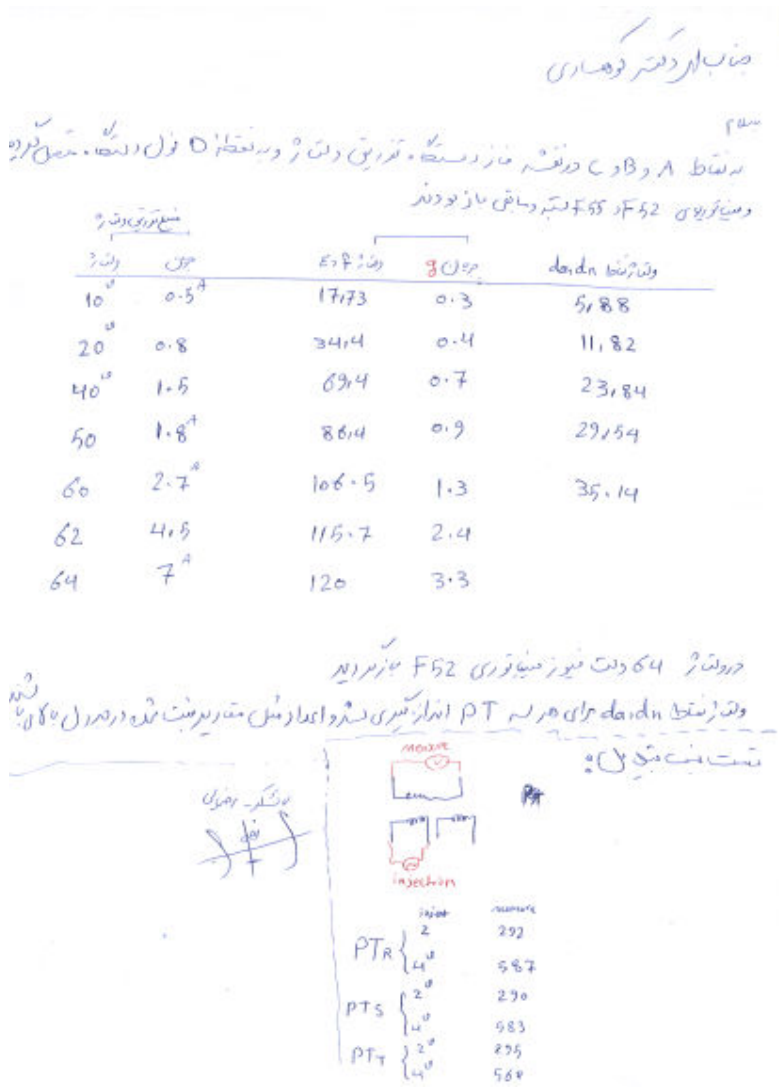 جناب آقای دکتر کوهساری
سلام
به نقاط A و B و C در نقشه فاز دستگاه تزریق ولتاژ و به نقطه D نول دستگاه متصل گردید
و مینیاتوریهای F52 و F55 بسته و مابقی باز بودند
منبع تزریق ولتاژ
ولتاژ جریان ولتاژ جریان g ولتاژ نقاط da,dn
10 0.5A 17,73 0.3 5,88
20 0.8 34,4 0.4 11,82
40 1.5 69,4 0.7 23,84
50 1.8A 86,4 0.9 29,54
60 2.7A 106.5 1.3 35.14
62 4,5 115.7 2.4
64 7A 120 3.3
در ولتاژ 64 ولت فیوز مینیاتوری F52 باز گردید
ولتاژ نقاط da,dn برای هر سه PT اندازه گیری شد و اعداد مثل مقادیر ثبت شده در جدول بالا می باشند
تست نسبت تبدیل:
measure
V
با تشکر - رضوی
injection
inject measure
PTR { 2 292
4 587
PTS { 2 290
4 583
PTT { 2 295
4 568